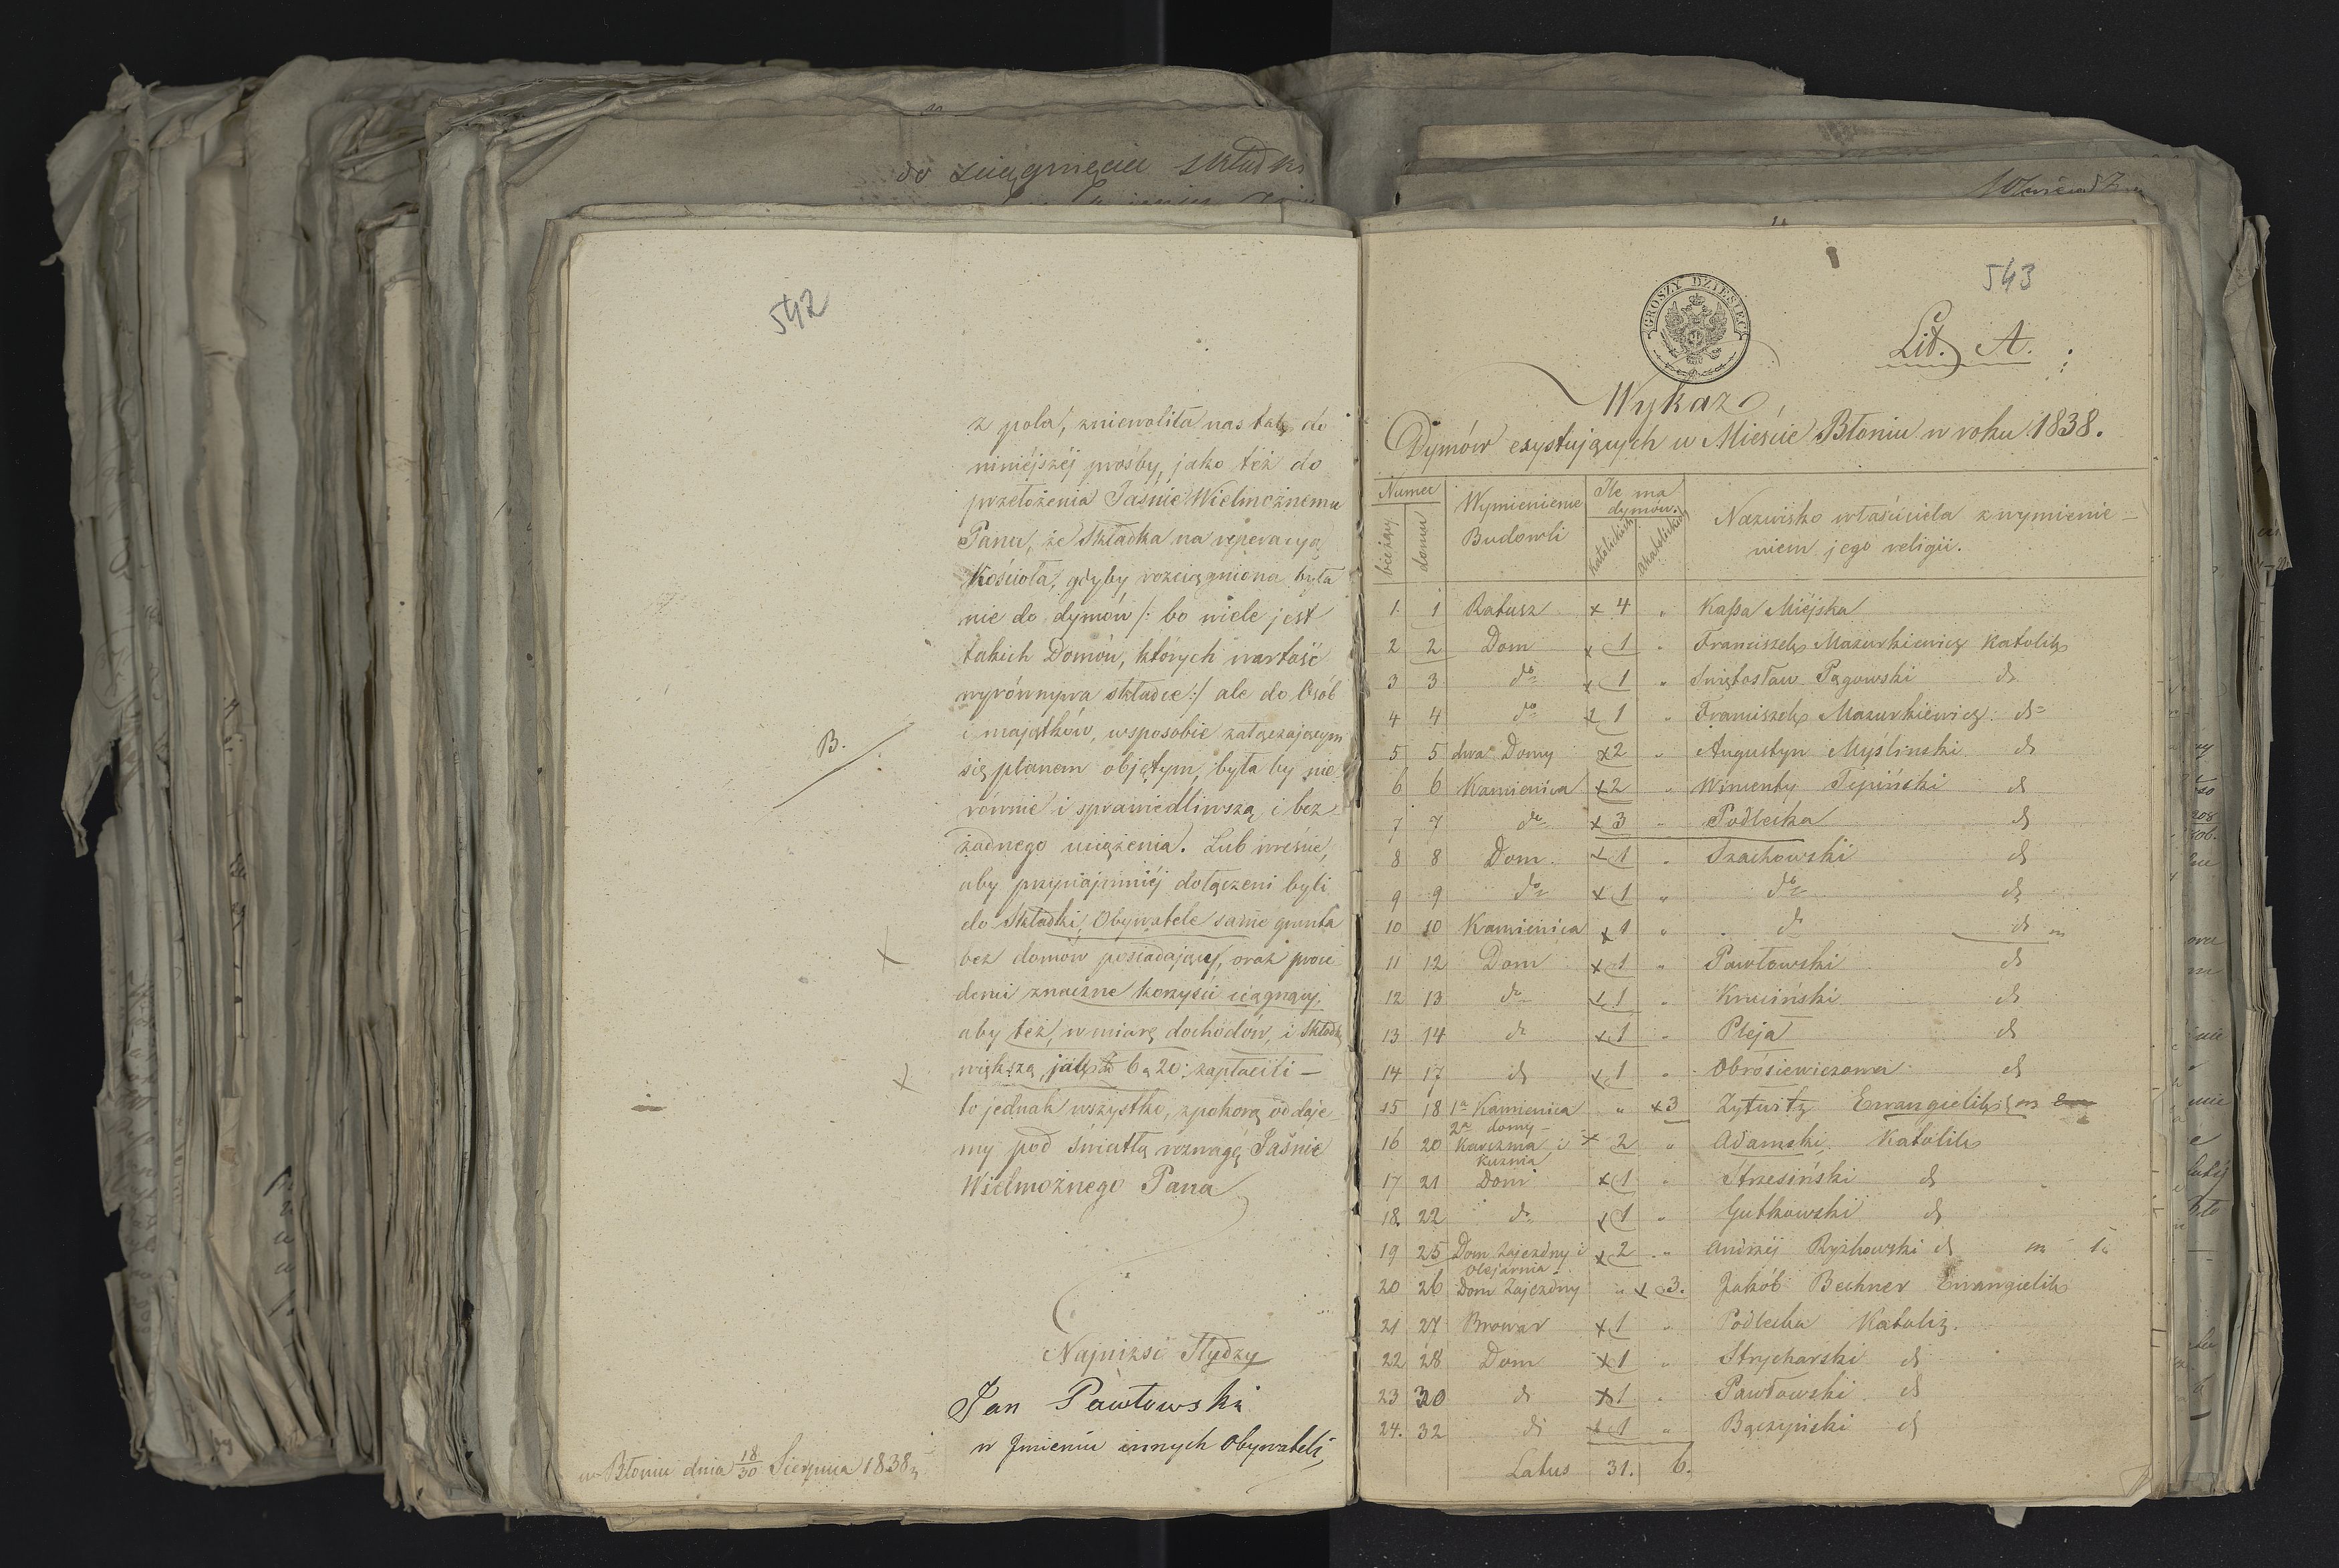 do zciągnięcia składki
542
z pola, zniewoliła nas tak do
niniéjszéj prośby, jako téż do
przełożenia Jaśnie Wielmożnemu
Panu, że Składka na reperacyą
Kościoła, gdyby rozciągniona była
nie do dymów /: bo wiele jest
takich Domów, których wartość
wyrównywa składce :/ ale do Osób
i majątków, wsposobie załączającym
B.
się planem objętym, była by nie
równie i sprawiedliwszą, i bez
żadnego uciążenia. Lub wreście,
aby przynajmniéj dołączeni byli
do Składki, Obywatele same grunta
bez domów posiadający, oraz
znaczne korzyści ciągnący,
aby téż, w miarę dochodów, i Składkę
większą, jak 6 a 20 zapłacili —
to jednak wszystko, zpokorą oddaje-
my pod światłą rozwagę Jaśnie
Wielmożnego Pana
Najniżsi Słudzy
Jan Pawłowski
w Jmieniu innych Obywateli
w Błoniu dnia 18/30 Sierpnia 1838
543
GROSZY DZIESIĘĆ
Lit. A.
Wykaz
Dymów exystujących w Mieście Błoniu w roku 1838.
Numer bieżący domu Wymienienie Budowli Ile ma dymów. katolickich akatolickich Nazwisko właściciela z wymienie-
niem jego religii.
1. 1 Ratusz x 4 " Kassa Miéjska
2 2 Dom x 1 " Franciszek Mazurkiewicz Katolik
3 3 do x 1 " Swiętosław Pągowski do
4 4 do x 1 " Franciszek Mazurkiewicz do
5 5 dwa Domy x 2 " Augustyn Myśliński do
6 6 Kamienica x 2 " Wincenty Tępiński do
7 7 do x 3 " Podlecka do
8 8 Dom x 1 " Szachowski do
9 9 do x 1 " do do
10 10 Kamienica x 1 " do do
11 12 Dom x 1 " Pawłowski do
12 13 do x 1 " Kruciński do
13 14 do x 1 " Pleja do
14 17 do x 1 " Obrosiewiczowa do
15 18 1a Kamienica " x 3 Zytwitz Ewangielik
2a domy
16 20 Karczma i x 2 " Adamski Katolik
Kuznia
17 21 Dom x 1 " Strzesiński do
18 22 do x 1 " Gutkowski do
19 25 Dom Zajezdny i x 2 " Andrzéj Ryżkowski do
Olejarnia
20 26 Dom Zajezdny " x 3. Jakób Bechner Ewangielik
21 27 Browar x 1 " Podlecka Katolicz.
22 28 Dom x 1 " Strycharski do
23 30 do x 1 " Pawłowski do
24. 32 do x 1 " Bączyński do
Latus 31. 6.